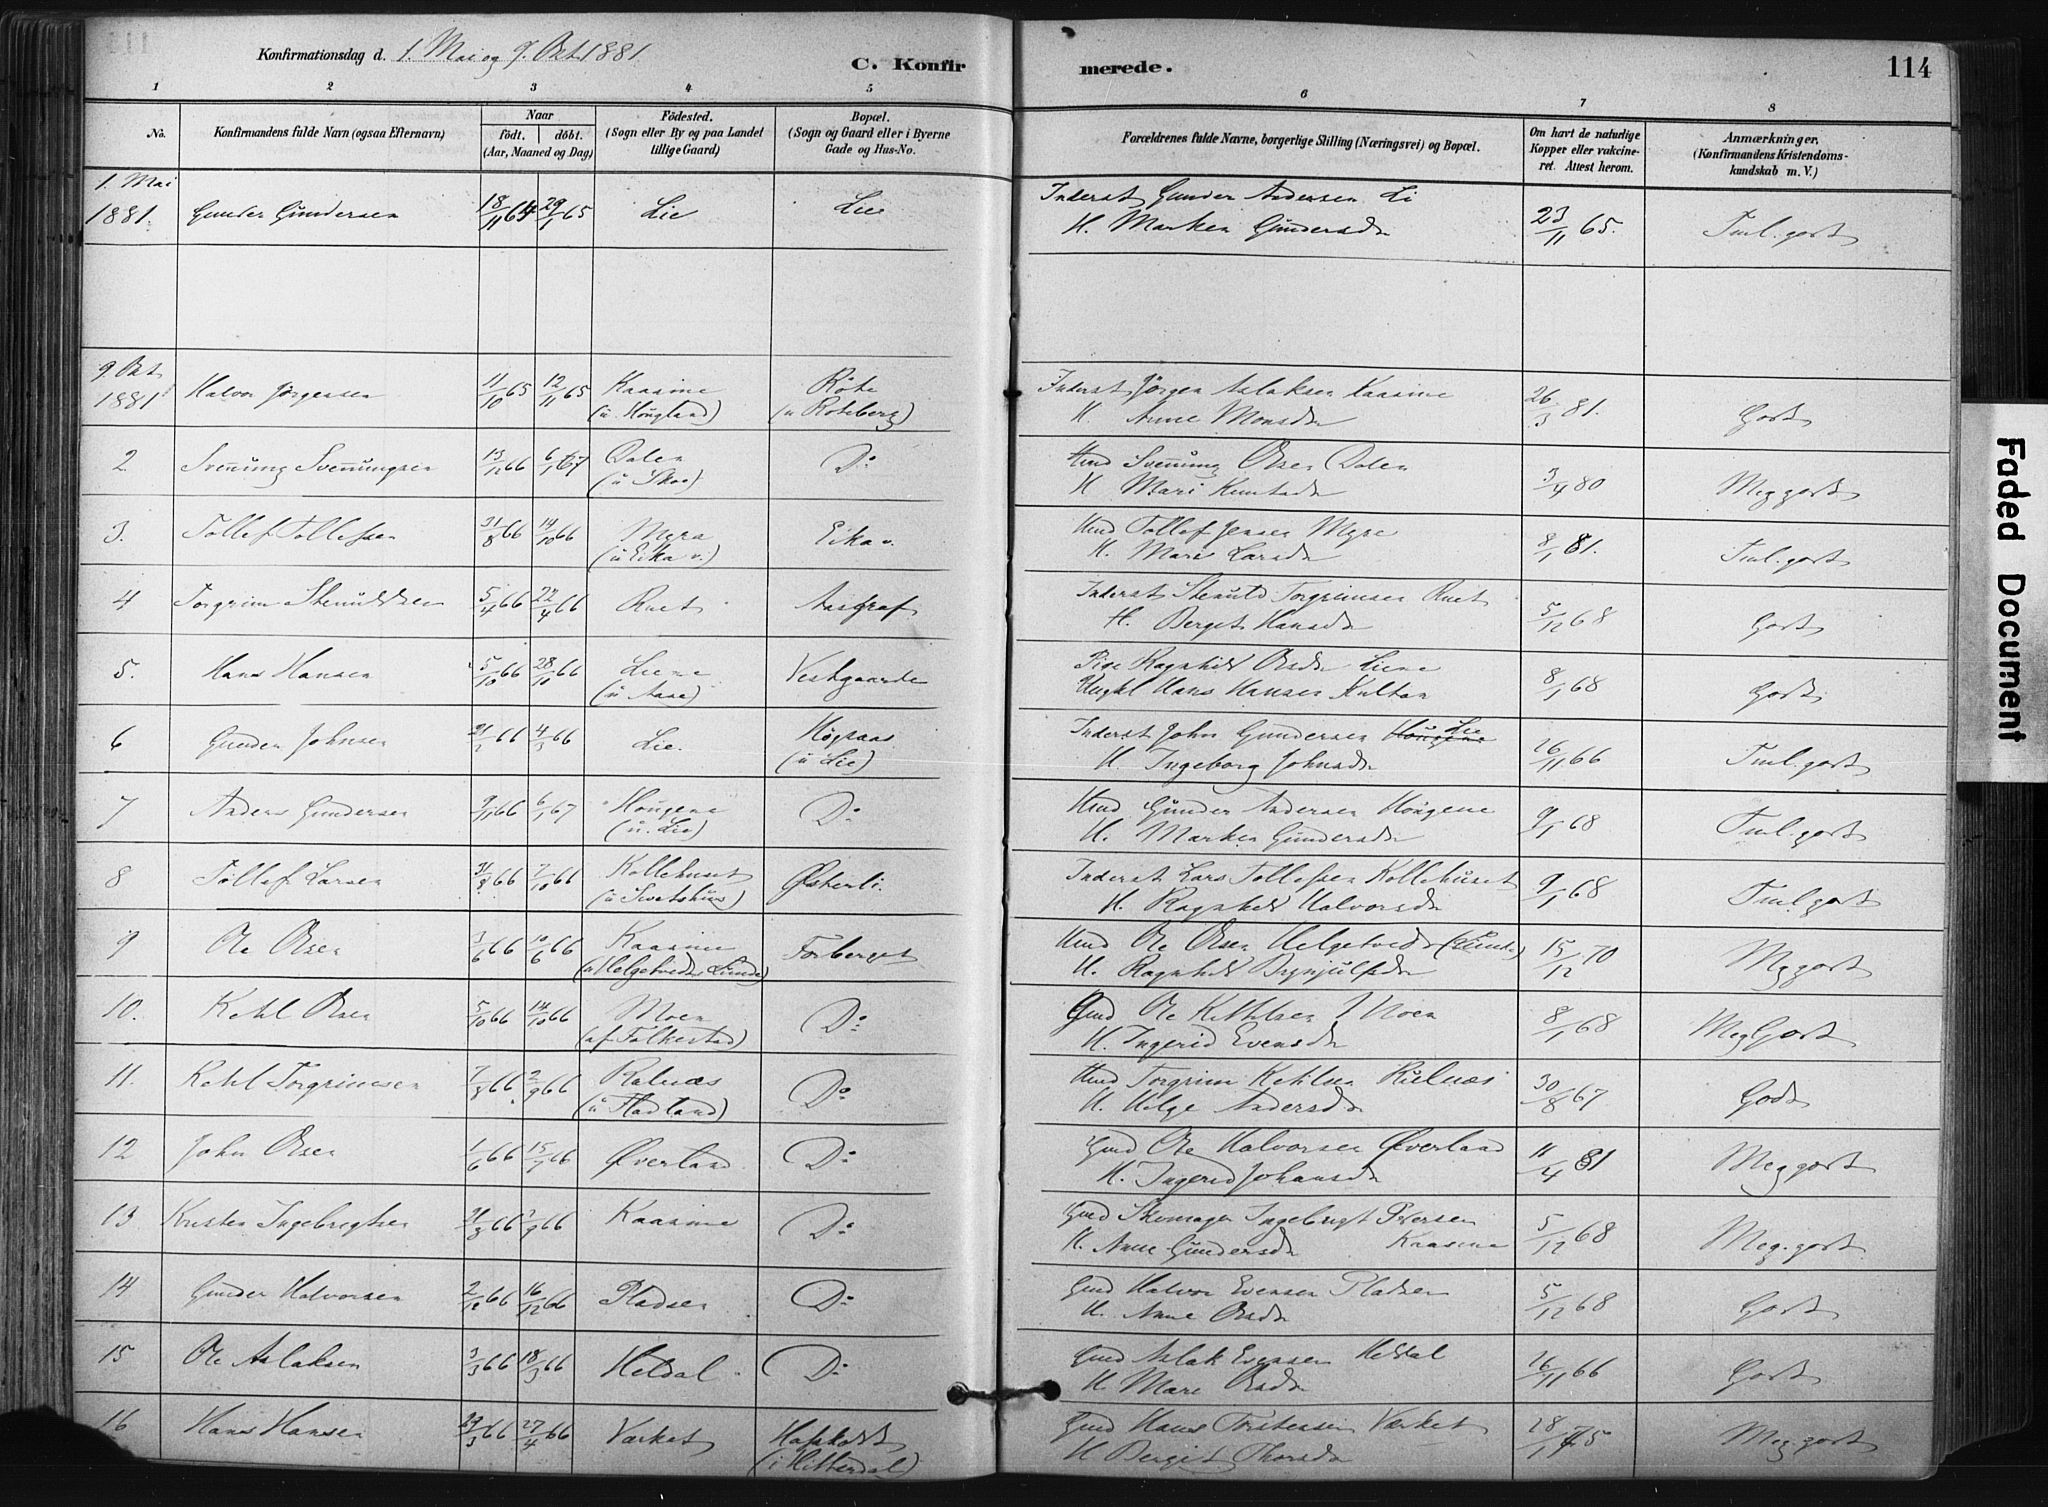 Konfirmationsdag d. 1. Mai og 9. Okt 1881. C. Konfirmerede. 114
1 2 3 4 5 6 7 8
No. Konfirmandens fulde Navn (ogsaa Efternavn) Naar födt. döbt. (Aar, Maaned og Dag) Födested. (Sogn eller By og paa Landet tillige Gaard) Bopæl. (Sogn og Gaard eller i Byerne Gade og Hus-No. Forældrenes fulde Navne, borgerlige Stilling (Næringsvei) og Bopæl. Om havt de naturlige Kopper eller vakcineret. Attest herom. Anmærkninger, (Konfirmandens Kristendomskundskab m. V.)
1. Mai 1881. Gunder Gundersen 18/11 64 29/1 65 Lie Lie Inderst Gunder Andersen Li
H. Marken Gundersd 23/11 65. Tml. godt
9. Okt 1881 Halvor Jörgensen 11/10 65 12/11 65 Kaasine (u Hougland) Röte (u Roteberg) Inderst Jörgen Aslaksen Kaasine
H. Anne Monsd 26/3 81. Godt
2 Svenung Svenungsen 13/12 66 6/1 67 Dalen (u Skoe) Do Hmd Svenung Olsen Dalen
H Mari Knutsd 3/4 80 Meg godt
3. Tollef Tollefsen 31/8 66 14/10 66 Myra (u Eika v.) Eika v. Hmd Tollef Jensen Myre
H. Mari Larsd 8/1 81. Tml. godt
4 Torgrim Stenulsen 5/4 66 22/4 66 Ruet Aasgraf Inderst Stenul Torgrimsen Ruet
H. Berget Hansd 5/12 68 Godt
5. Hans Hansen 5/10 66 28/10 66 Liene (u Aase) Vestgaarde Pige Ragnhild Olsd Liene
Ungkl Hans Hansen Kultan 8/1 68 Godt
6 Gunder Johnsen 21/2 66 4/3 66 Lie. Högaas (u Lie) Inderst John Gundersen Lie
H. Ingeborg Johnsd 16/11 66 Tml. godt
7 Anders Gundersen 9/11 66 6/1 67 Hougene (u. Lie) Do Hmd Gunder Andersen Hougene
H. Marken Gundersd 9/1 68 Tml. godt
8 Tollef Larsen 31/8 66 7/10 66 Kollehuset Østerli. Inderst Lars Tollefsen Kollehuset
H. Ragnhild Halvorsd 9/1 68 Tml. godt
9 Ole Olsen 3/6 66 10/6 66 Kaasine (u Helgetveds Lunde) Torberget Hmd Ole Olsen Helgetved (Lunde)
H. Ragnhild Brynjulfsd 15/12 70 Mg godt
10. Ketil Olsen 5/10 66 14/10 66 Moen (af Folkestad) Do Gmd Ole Kittilsen Moen
H. Ingerid Evensd 8/1 68 Meg Godt
11. Ketil Torgrimsen 7/8 66 2/9 66 Rulnæs (u Fladland) Do Hmd Torgrim Ketilsen Rulnæs
H. Helge Andersd 30/8 67 Godt
12 John Olsen 1/6 66 15/7 66 Øverland Do Gmd Ole Halvorsen Øverland
H. Ingerid Johansd 11/4 81 Meg godt
13 Kristen Ingebrigtsen 21/8 66 2/9 66 Kaasine Do Gmd Skomager Ingebrigt Pedersen
H. Anne Gundersd Kaasine 5/12 68 Meg. godt
14 Gunder Halvorsen 2/12 66 16/12 66 Pladsen Do Gmd Halvor Evensen Pladsen
H. Anne Olsd 5/12 68 Godt
15 Ole Aslaksen 3/3 66 18/3 66 Heldal Do Gmd Aslak Evensen Heldal
H Mari Olsd 16/11 66 Godt
16 Hans Hansen 29/3 66 27/4 66 Værket (i Hitterdal) Gmd Hans Torstensen Værket
H Bergit Thorsd 28/1 75 Meg. godt
Faded Document